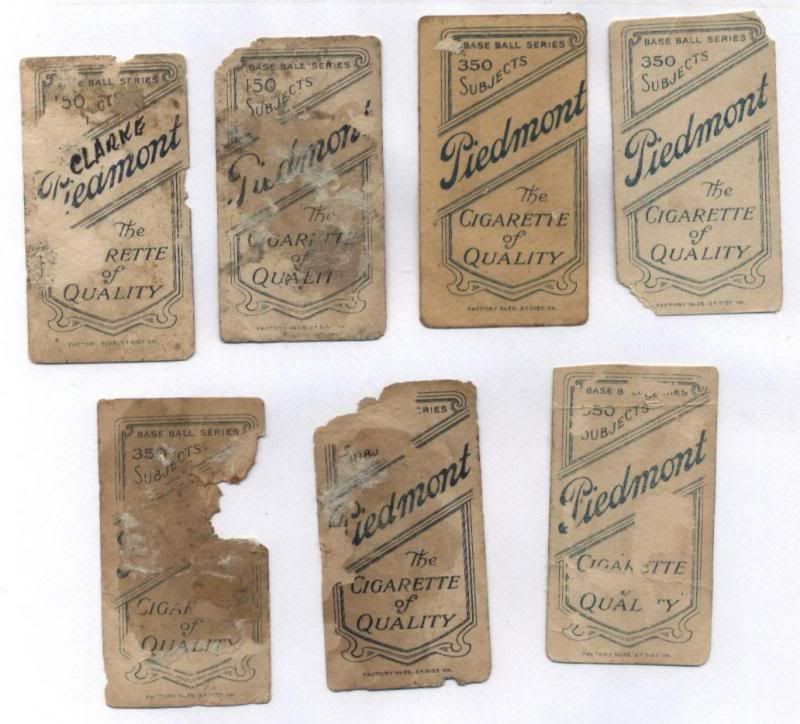 BALL SERIES
150
CLARKE
Piedmont
The
RETTE
of
QUALITY
FACTORY No 25, 2nd DIST. VA.
BASE BALL SERIES
150
SUBJECTS
Piedmont
The
CIGARETTE
of
QUALIT
FACTORY No 25, 2nd DIST. VA.
BASE BALL SERIES
350
SUBJECTS
Piedmont
The
CIGARETTE
of
QUALITY
FACTORY No 25, 2nd DIST. VA.
BASE BALL SERIES
350
SUBJECTS
Piedmont
The
CIGARETTE
of
QUALITY
FACTORY No 25, 2nd DIST. VA.
BASE BALL SERIES
350
SUBJECTS
CIGAR
of
QUALITY
FACTORY No 25, 2nd DIST. VA.
RIES
SUBJ
Piedmont
The
CIGARETTE
of
QUALITY
FACTORY No 25, 2nd DIST. VA.
BASE B IES
350
SUBJECTS
Piedmont
CIGARETTE
QUAL TY
FACTORY No 25, 2nd DIST. VA.